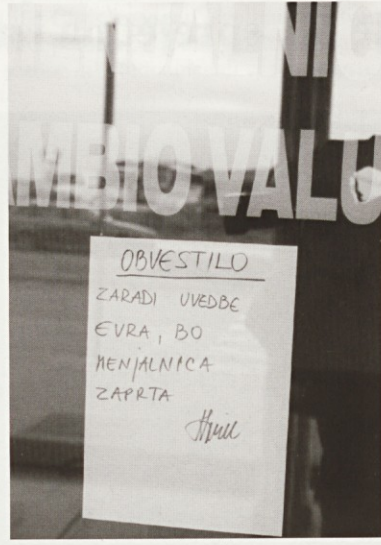 NI
MBIO VALU
OBVESTILO
ZARADI UVEDBE
EVRA, BO
MENJALNICA
ZAPRTA